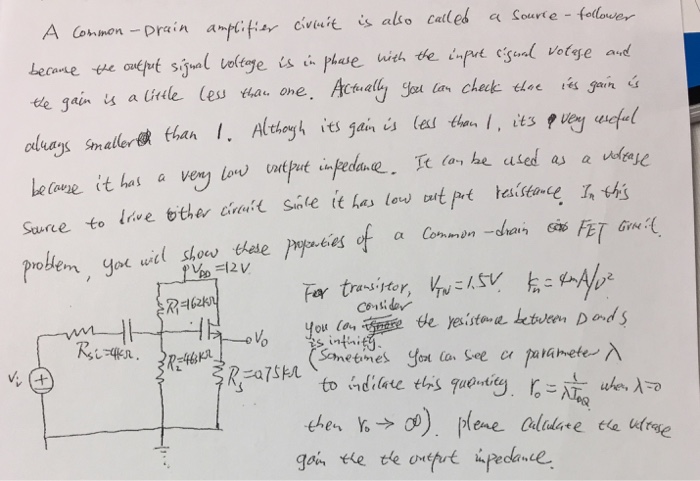 A Common-Drain amplifier circuit is also called a Source-follower
because the output signal voltage is in phase with the input signal voltage and
the gain is a little less than one. Actually you can check that its gain is
always smaller than 1. Although its gain is less than 1, it's very useful
because it has a very low output impedance. It can be used as a voltage
Source to drive other circuit since it has low output resistance. In this
problem, you will show these properties of a Common-drain FET Circuit.
V_DD=12V
R1=162kΩ
R2=463kΩ
Rsi=4kΩ.
Vi
Vo
Rs=0.75kΩ
For transistor, V_TN=1.5V. kn=4mA/V²
You can consider the resistance between D and S
is infinity.
(Sometimes you can see a parameter λ
to indicate this quantity. ro=1/λI_DQ when λ=0
then ro→∞). please calculate the voltage
gain the the output impedance.